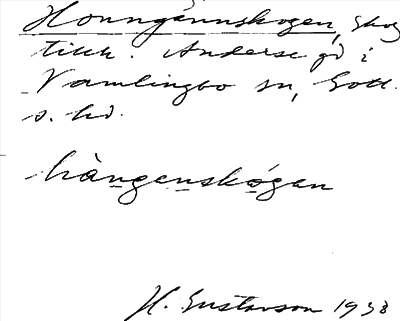 Honngännskogen, skog
tillh. Anderse gd i
Vamlingbo sn, Gotl.
s. hd.
hàngenskógen
H. Gustavson 1938